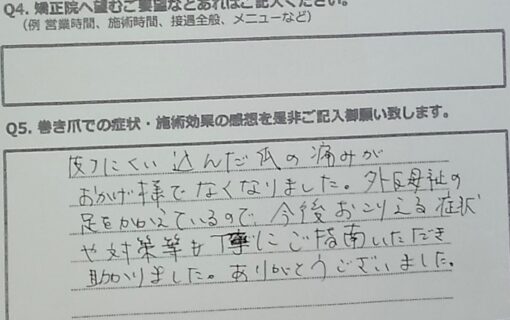 Q4. 矯正院へ望むご要望などあればご記入ください。
（例 営業時間、施術時間、接遇全般、メニューなど）
Q5. 巻き爪での症状・施術効果の感想を是非ご記入御願い致します。
皮フにくい込んだ爪の痛みが
おかげ様でなくなりました。外反母趾の
足をかかえているので、今後おこりえる症状
や対策等も丁寧にご指南いただき
助かりました。ありがとうございました。